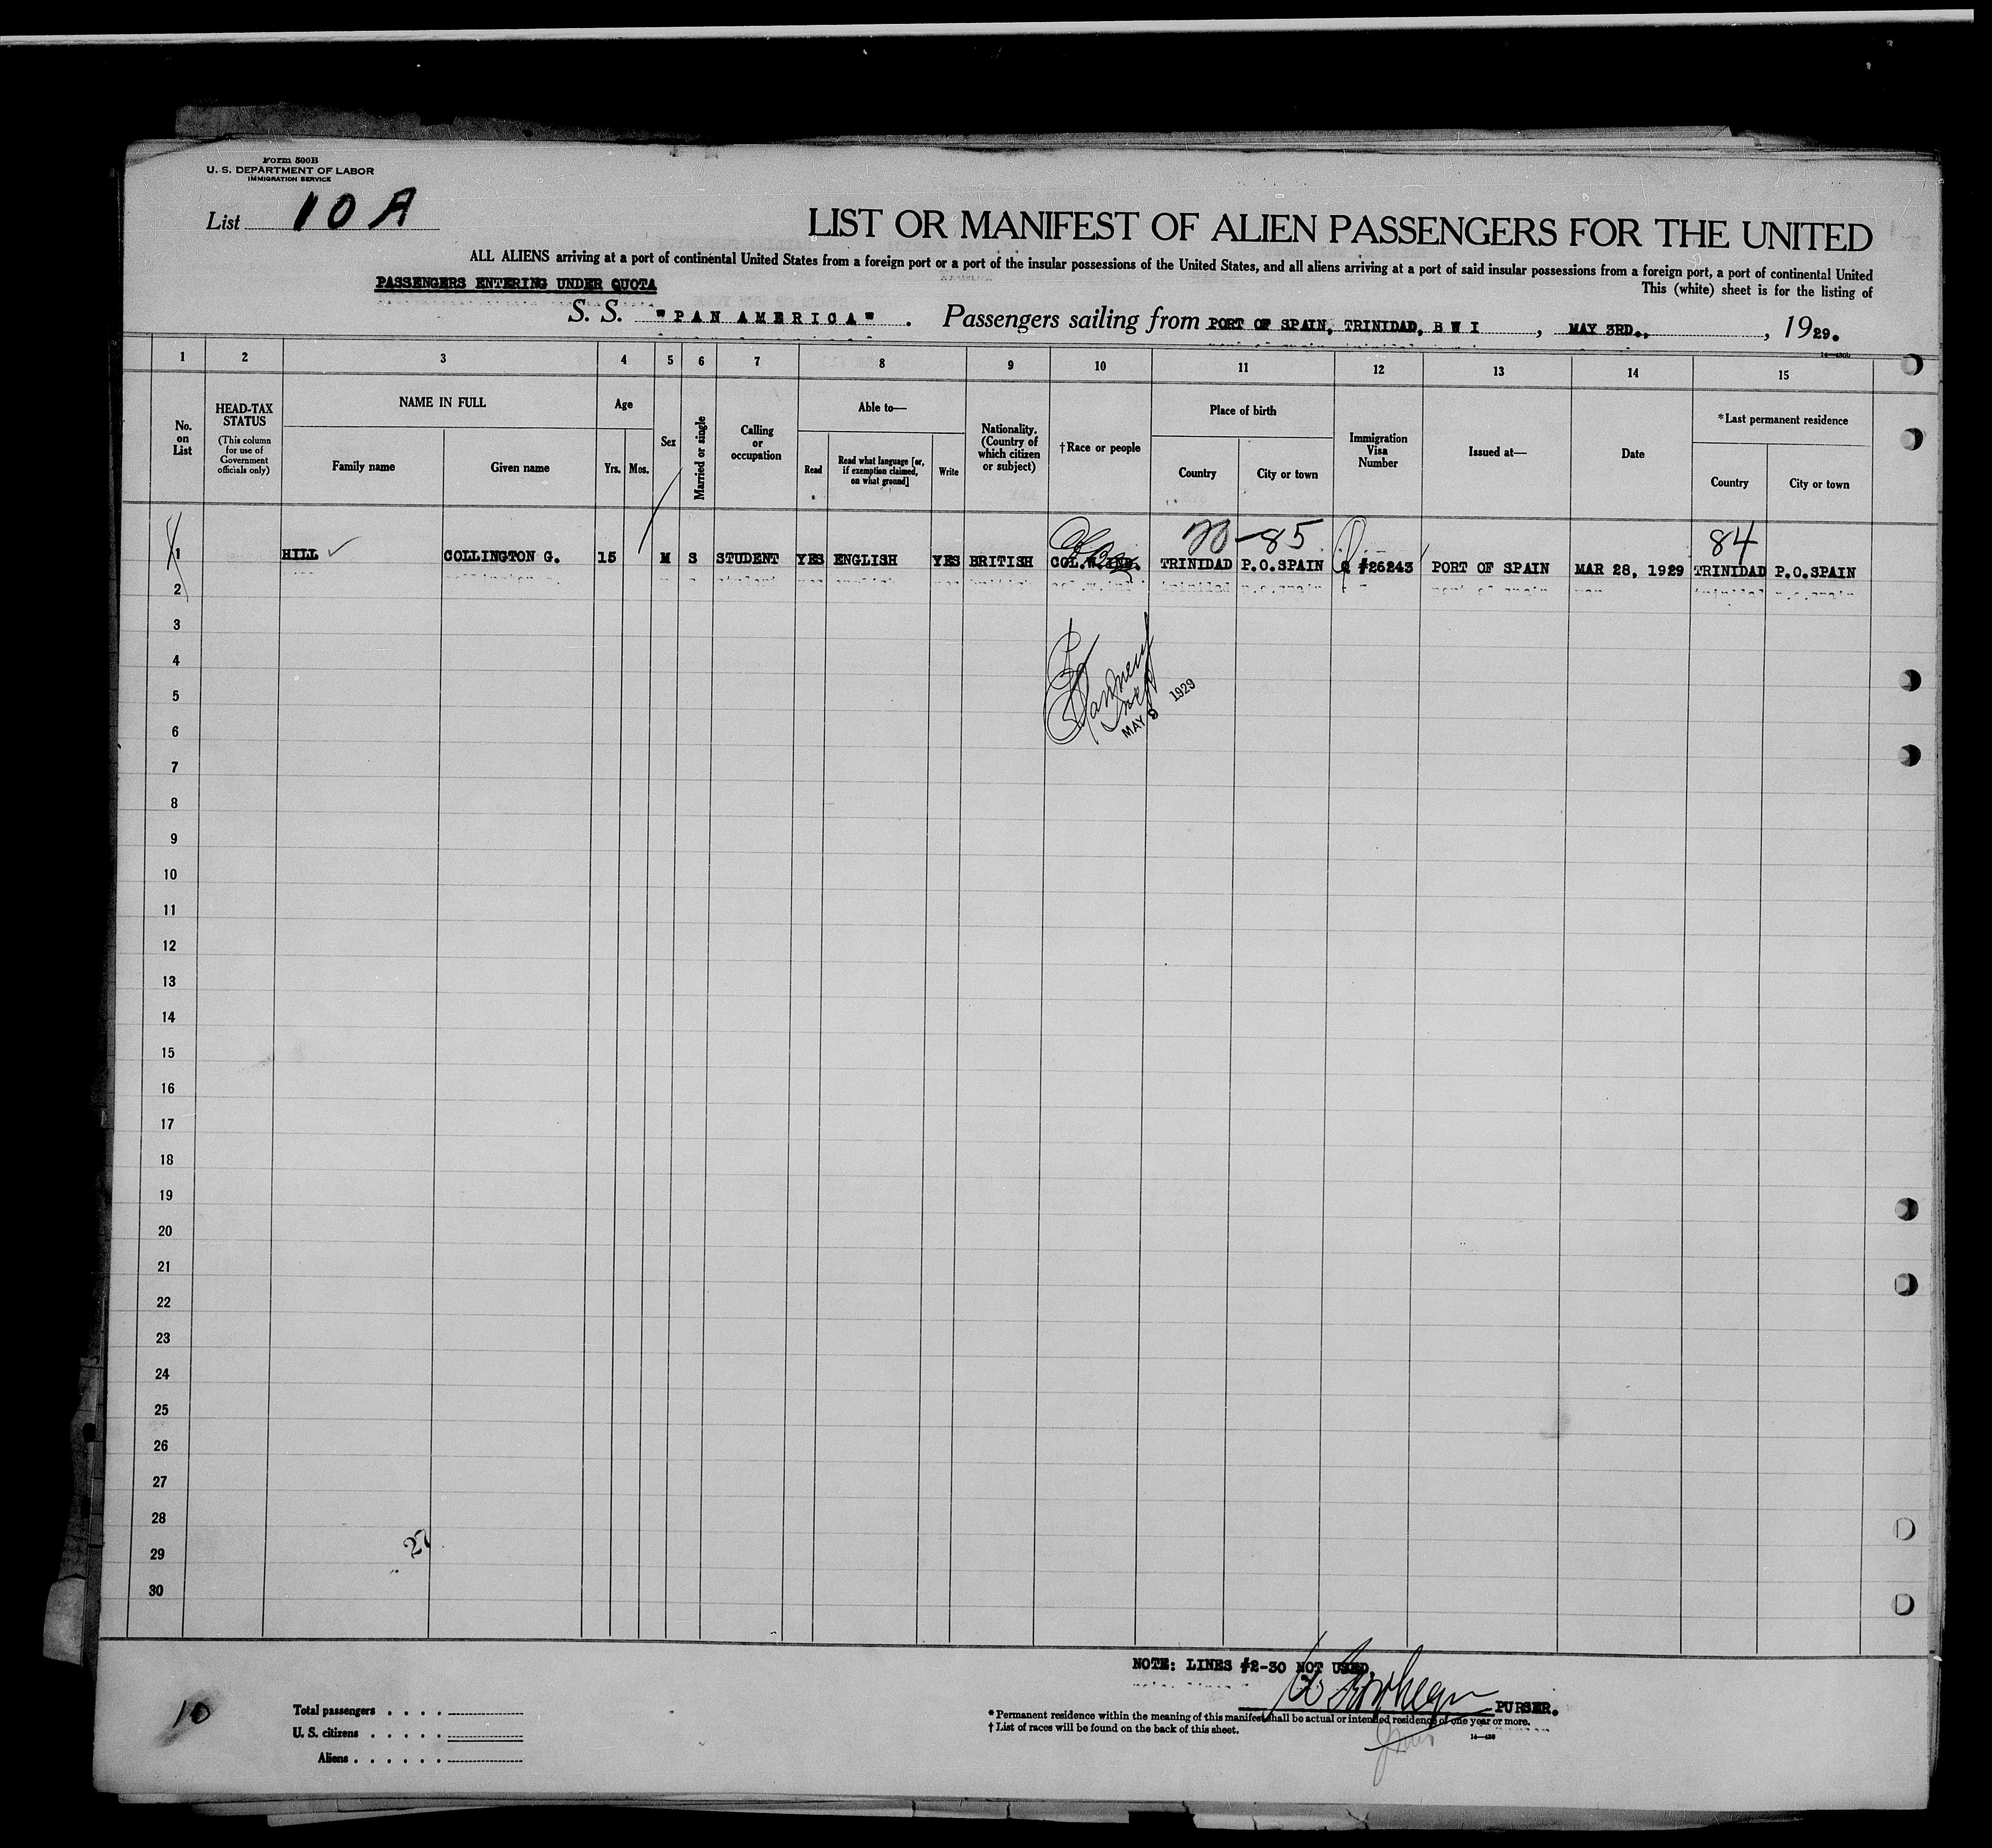 Form 500B
U. S. DEPARTMENT OF LABOR
IMMIGRATION SERVICE
List 10 A
LIST OR MANIFEST OF ALIEN PASSENGERS FOR THE UNITED
ALL ALIENS arriving at a port of continental United States from a foreign port or a port of the insular possessions of the United States, and all aliens arriving at a port of said insular possessions from a foreign port, a port of continental United
PASSENGERS ENTERING UNDER QUOTA
This (white) sheet is for the listing of
S. S. "PAN AMERICA" . Passengers sailing from PORT OF SPAIN, TRINIDAD, B W I , MAY 3RD., , 1929.
1 2 3 4 5 6 7 8 9 10 11 12 13 14 15
No. on List
HEAD-TAX STATUS
(This column for use of Government officials only)
NAME IN FULL
Family name
Given name
Age
Yrs. Mos.
Sex
Married or single
Calling or occupation
Able to—
Read
Read what language [or, if exemption claimed, on what ground]
Write
Nationality. (Country of which citizen or subject)
†Race or people
Place of birth
Country
City or town
Immigration Visa Number
Issued at—
Date
*Last permanent residence
Country
City or town
85 84
1 HILL COLLINGTON G. 15 M S STUDENT YES ENGLISH YES BRITISH COL.W.IND. TRINIDAD P.O.SPAIN Q #26243 PORT OF SPAIN MAR 28, 1929 TRINIDAD P.O.SPAIN
2
3
4
5
MAY 9 1929
6
7
8
9
10
11
12
13
14
15
16
17
18
19
20
21
22
23
24
25
26
27
28
27
29
30
NOTE: LINES #2-30 NOT USED.
PURSER.
10
Total passengers . . . .
U. S. citizens . . . . .
Aliens . . . . . .
* Permanent residence within the meaning of this manifest shall be actual or intended residence of one year or more.
† List of races will be found on the back of this sheet.